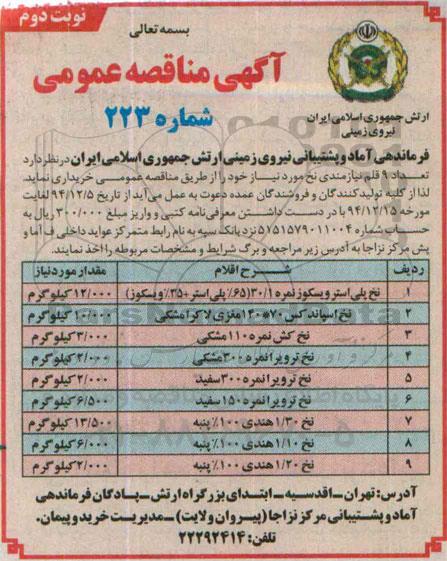 نوبت دوم
بسمه تعالی
آگهی مناقصه عمومی
شماره ۲۲۳
ارتش جمهوری اسلامی ایران
نیروی زمینی
فرماندهی آماد و پشتیبانی نیروی زمینی ارتش جمهوری اسلامی ایران در نظر دارد
تعداد ۹ قلم نیازمندی نخ مورد نیاز خود را از طریق مناقصه عمومی خریداری نماید.
لذا از کلیه تولیدکنندگان و فروشندگان عمده دعوت به عمل می‌آید از تاریخ ۹۴/۱۲/۵ لغایت
مورخه ۹۴/۱۲/۱۵ با در دست داشتن معرفی‌نامه کتبی و واریز مبلغ ۳۰۰/۰۰۰ ریال به
حساب شماره ۵۷۵۱۵۷۹۰۱۱۰۰۴ نزد بانک سپه به نام رابط متمرکز عواید داخلی ف آما و
پش مرکز نزاجا به آدرس زیر مراجعه و برگ شرایط و مشخصات مربوطه را اخذ نمایند.
ردیف شرح اقلام مقدار مورد نیاز
۱ نخ پلی استر ویسکوز نمره ۳۰/۱ (۶۵٪ پلی استر+۳۵٪ ویسکوز) ۱۲/۰۰۰ کیلوگرم
۲ نخ اسپاندکس ۷۰*۱۴۰ مغزی لاکرا مشکی ۱۰/۰۰۰ کیلوگرم
۳ نخ کش نمره ۱۱۰ مشکی ۳/۰۰۰ کیلوگرم
۴ نخ ترویرا نمره ۳۰۰ مشکی ۲/۰۰۰ کیلوگرم
۵ نخ ترویرا نمره ۳۰۰ سفید ۲/۰۰۰ کیلوگرم
۶ نخ ترویرا نمره ۱۵۰ سفید ۶/۵۰۰ کیلوگرم
۷ نخ ۱/۳۰ هندی ۱۰۰٪ پنبه ۱۳/۵۰۰ کیلوگرم
۸ نخ ۱/۱۰ هندی ۱۰۰٪ پنبه ۶/۰۰۰ کیلوگرم
۹ نخ ۱/۲۰ هندی ۱۰۰٪ پنبه ۲/۰۰۰ کیلوگرم
آدرس: تهران ـ اقدسیه ـ ابتدای بزرگراه ارتش ـ پادگان فرماندهی
آماد و پشتیبانی مرکز نزاجا (پیروان ولایت) ـ مدیریت خرید و پیمان.
تلفن: ۲۲۲۹۲۴۱۴